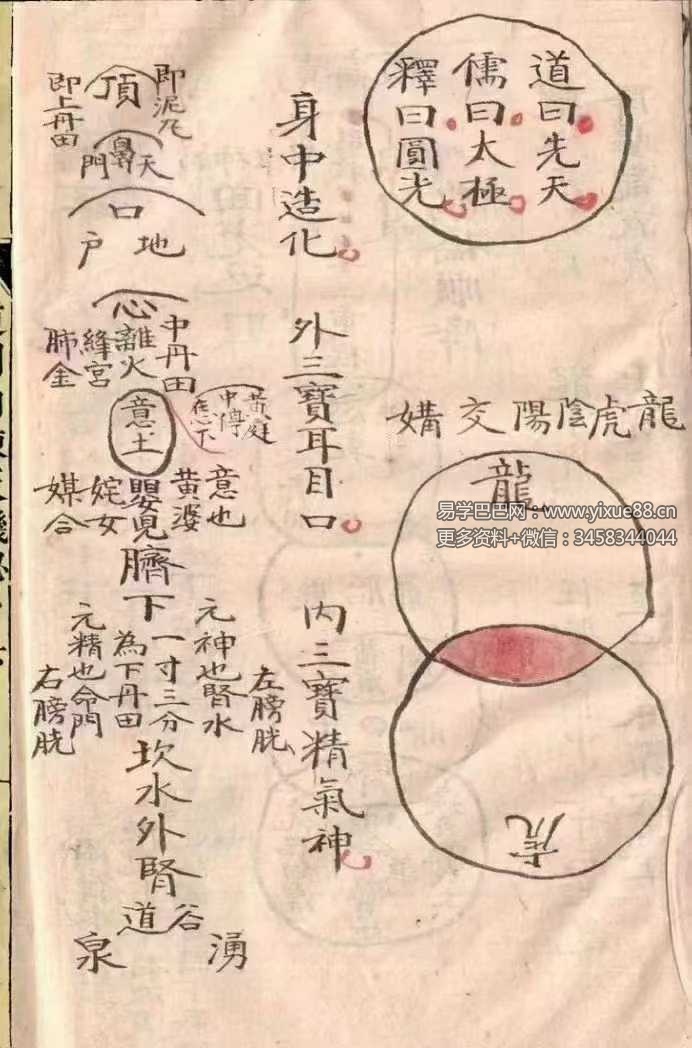 道曰先天
儒曰太極
釋曰圓光
龍虎陰陽交媾
龍
虎
身中造化
外三寶耳目口
內三寶精氣神
即泥丸
頂
即上丹田
天
鼻
門
口
地
户
心
中丹田
離火
絳宮
肺金
意土
黃庭
中
意也
黃婆
嬰兒
姹女
媒合
臍下一寸三分
為下丹田
元神也腎水
元精也命門
左膀胱
右膀胱
坎水外腎
谷道
湧泉
易学巴巴网:www.yixue88.cn
更多资料+微信:3458344044